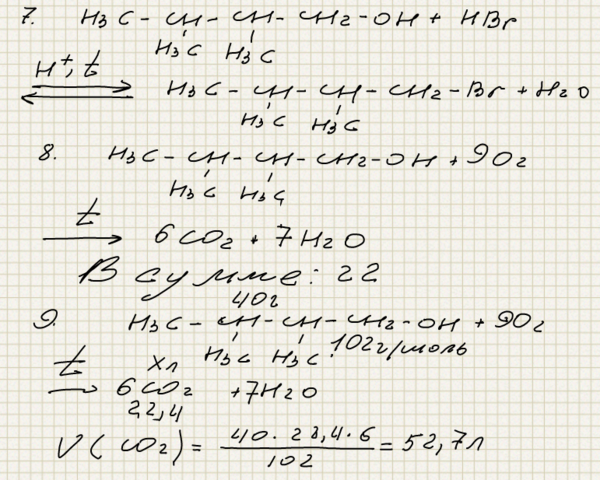 7. H3C - CH - CH - CH2 - OH + HBr
H3C H3C
H+, t
H3C - CH - CH - CH2 - Br + H2O
H3C H3C
8. H3C - CH - CH - CH2 - OH + 9O2
H3C H3C
t
6CO2 + 7H2O
В сумме: 22
40г
9. H3C - CH - CH - CH2 - OH + 9O2
H3C H3C 102г/моль
t xл
6CO2 + 7H2O
22,4
V(CO2) = 40 · 22,4 · 6 / 102 = 52,7л